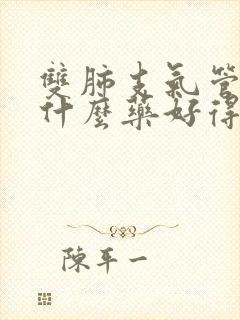 雙肺支氣管
什麼藥好得
陳平一